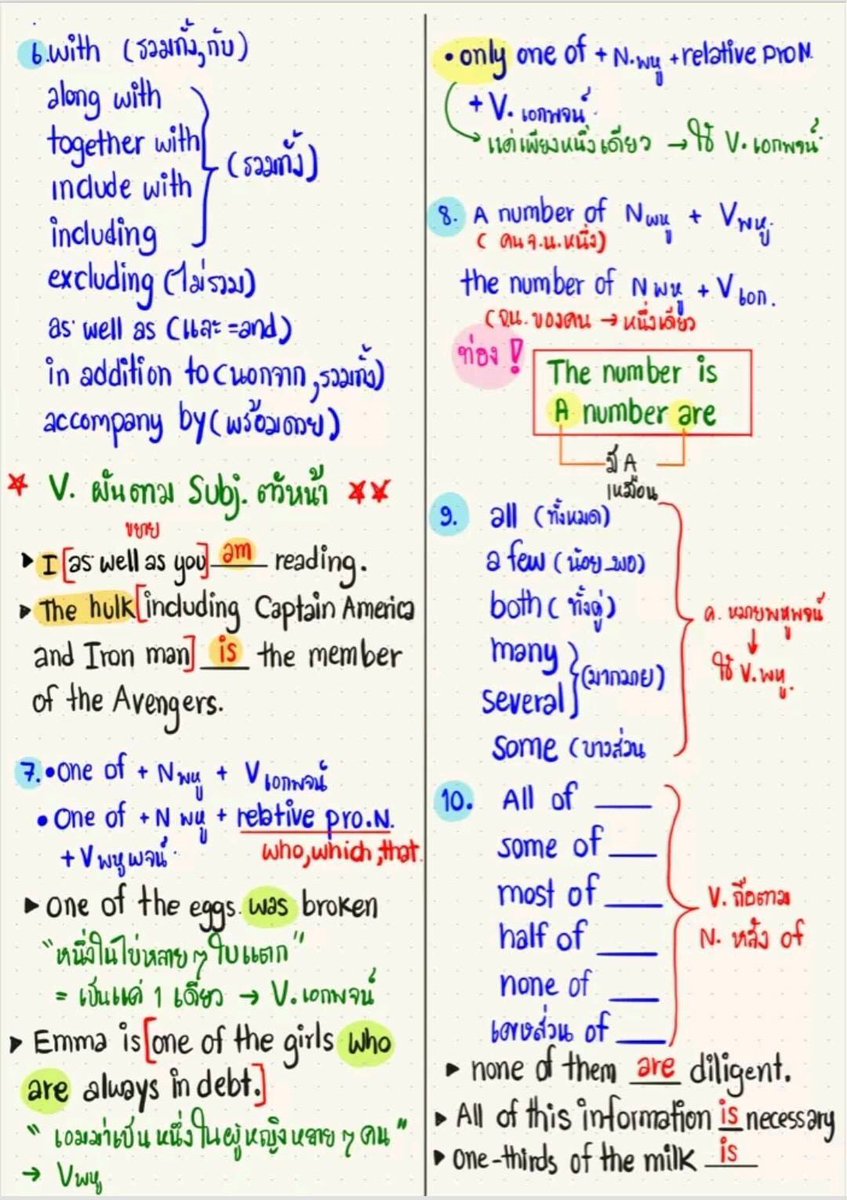 6. with (รวมทั้ง, กับ)
along with
together with
include with
including
(รวมทั้ง)
excluding (ไม่รวม)
as well as (และ =and)
in addition to (นอกจาก, รวมทั้ง)
accompany by (พร้อมด้วย)
V. ผันตาม Subj. ตัวหน้า
ขยาย
I [as well as you] am reading.
The hulk [including Captain America
and Iron man] is the member
of the Avengers.
7. • One of + N พหู + V เอกพจน์
• One of + N พหู + relative pro.N.
+ V พหูพจน์.
who, which, that
one of the eggs was broken
"หนึ่งในไข่หลายๆ ใบแตก"
= เป็นแค่ 1 เดียว → V. เอกพจน์
Emma is [one of the girls who
are always in debt.]
"เอมม่าเป็นหนึ่งในผู้หญิงหลายๆ คน"
→ V พหู
• only one of + N. พหู + relative pro N.
+ V. เอกพจน์.
แค่เพียงหนึ่งเดียว → ใช้ V. เอกพจน์
8. A number of N พหู + V พหู.
(คนจ.น.หนึ่ง)
the number of N พหู + V เอก.
(จน. ของคน → หนึ่งเดียว
ท่อง!
The number is
A number are
มี A
เหมือน
9. all (ทั้งหมด)
a few (น้อย_พอ)
both (ทั้งคู่)
many
several
(มากมาย)
some (บางส่วน
ค. หมายพหูพจน์
↓
ใช้ V. พหู.
10. All of ___
some of ___
most of ___
half of ___
none of ___
เศษส่วน of ___
V. ถือตาม
N. หลัง of
none of them are diligent.
All of this information is necessary
one-thirds of the milk is